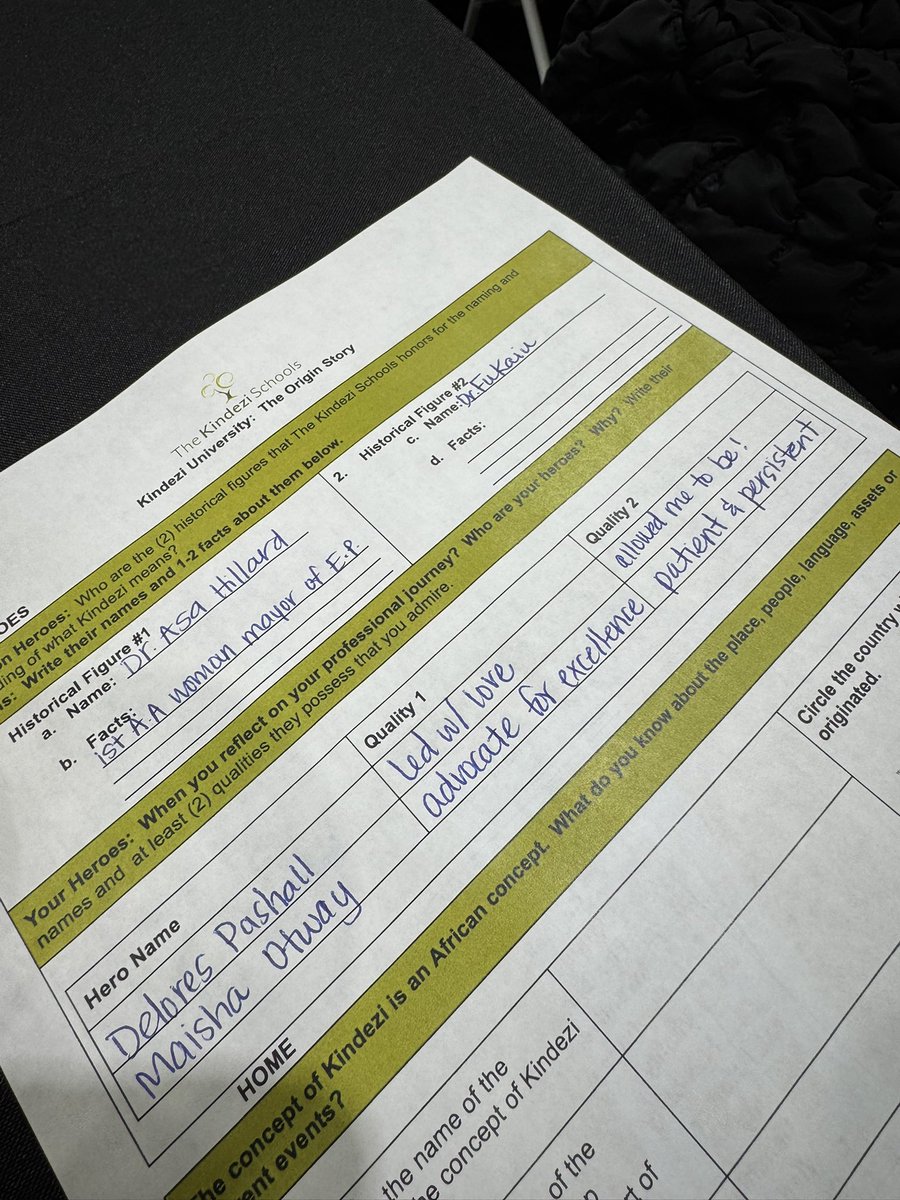 The Kindezi Schools
Kindezi University: The Origin Story
OES
on Heroes: Who are the (2) historical figures that The Kindezi Schools honors for the naming and
ding of what Kindezi means?
ns: Write their names and 1-2 facts about them below.
Historical Figure #1
a. Name: Dr. Asa Hillard
b. Facts:
1st A.A woman mayor of E.P.
2.
Historical Figure #2
c. Name: Dr. FuKaiu
d. Facts:
Your Heroes: When you reflect on your professional journey? Who are your heroes? Why? Write their
names and at least (2) qualities they possess that you admire.
Hero Name
Quality 1
Quality 2
Delores Pashall
led w/ love
allowed me to be!
Maisha Otway
advocate for excellence
patient & persistent
HOME
The concept of Kindezi is an African concept. What do you know about the place, people, language, assets or
ent events?
the name of the
e concept of Kindezi
Circle the country w
originated.
of the
rt of